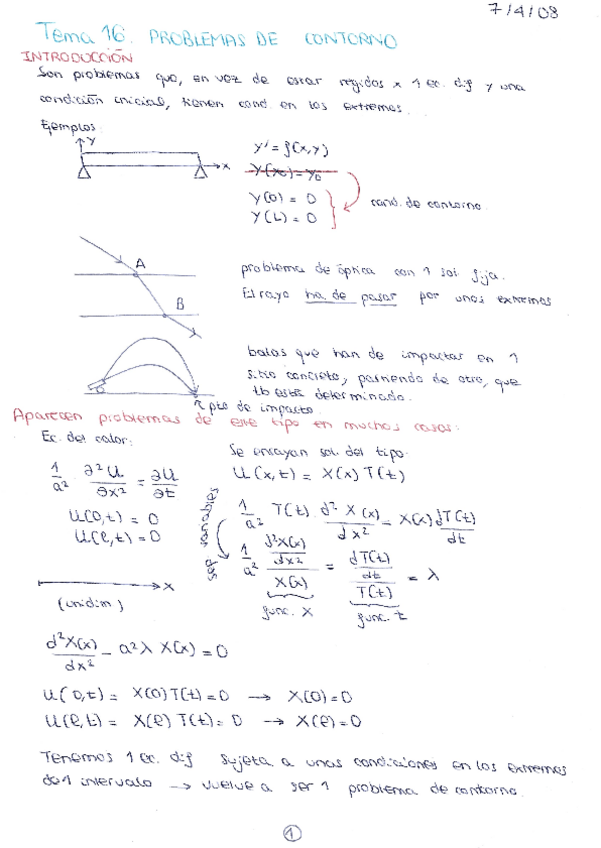 7/4/08
Tema 16. PROBLEMAS DE CONTORNO
INTRODUCCIÓN
Son problemas que, en vez de estar regidos x 1 ec. dif y una
condición inicial, tienen cond. en los extremos.
Ejemplos:
y
x
y' = f(x,y)
y(x₀) = y₀
y(0) = 0
y(L) = 0
cond. de contorno
A
B
problema de óptica con 1 sol. fija.
El rayo ha de pasar por unos extremos
balas que han de impactar en 1
sitio concreto, partiendo de otro, que
tb está determinado.
pto de impacto.
Aparecen problemas de este tipo en muchos casos:
Ec. del calor:
1/a² ∂²u/∂x² = ∂u/∂t
u(0,t) = 0
u(l,t) = 0
x
(unidim)
Se ensayan sol. del tipo:
u(x,t) = X(x) T(t)
sep variables
1/a² T(t) d²X(x)/dx² = X(x) dT(t)/dt
1/a² (d²X(x)/dx²)/X(x) = (dT(t)/dt)/T(t) = λ
func. x
func. t
d²X(x)/dx² - a²λ X(x) = 0
u(0,t) = X(0) T(t) = 0 → X(0) = 0
u(l,t) = X(l) T(t) = 0 → X(l) = 0
Tenemos 1 ec. dif sujeta a unas condiciones en los extremos
de 1 intervalo → vuelve a ser 1 problema de contorno.
1